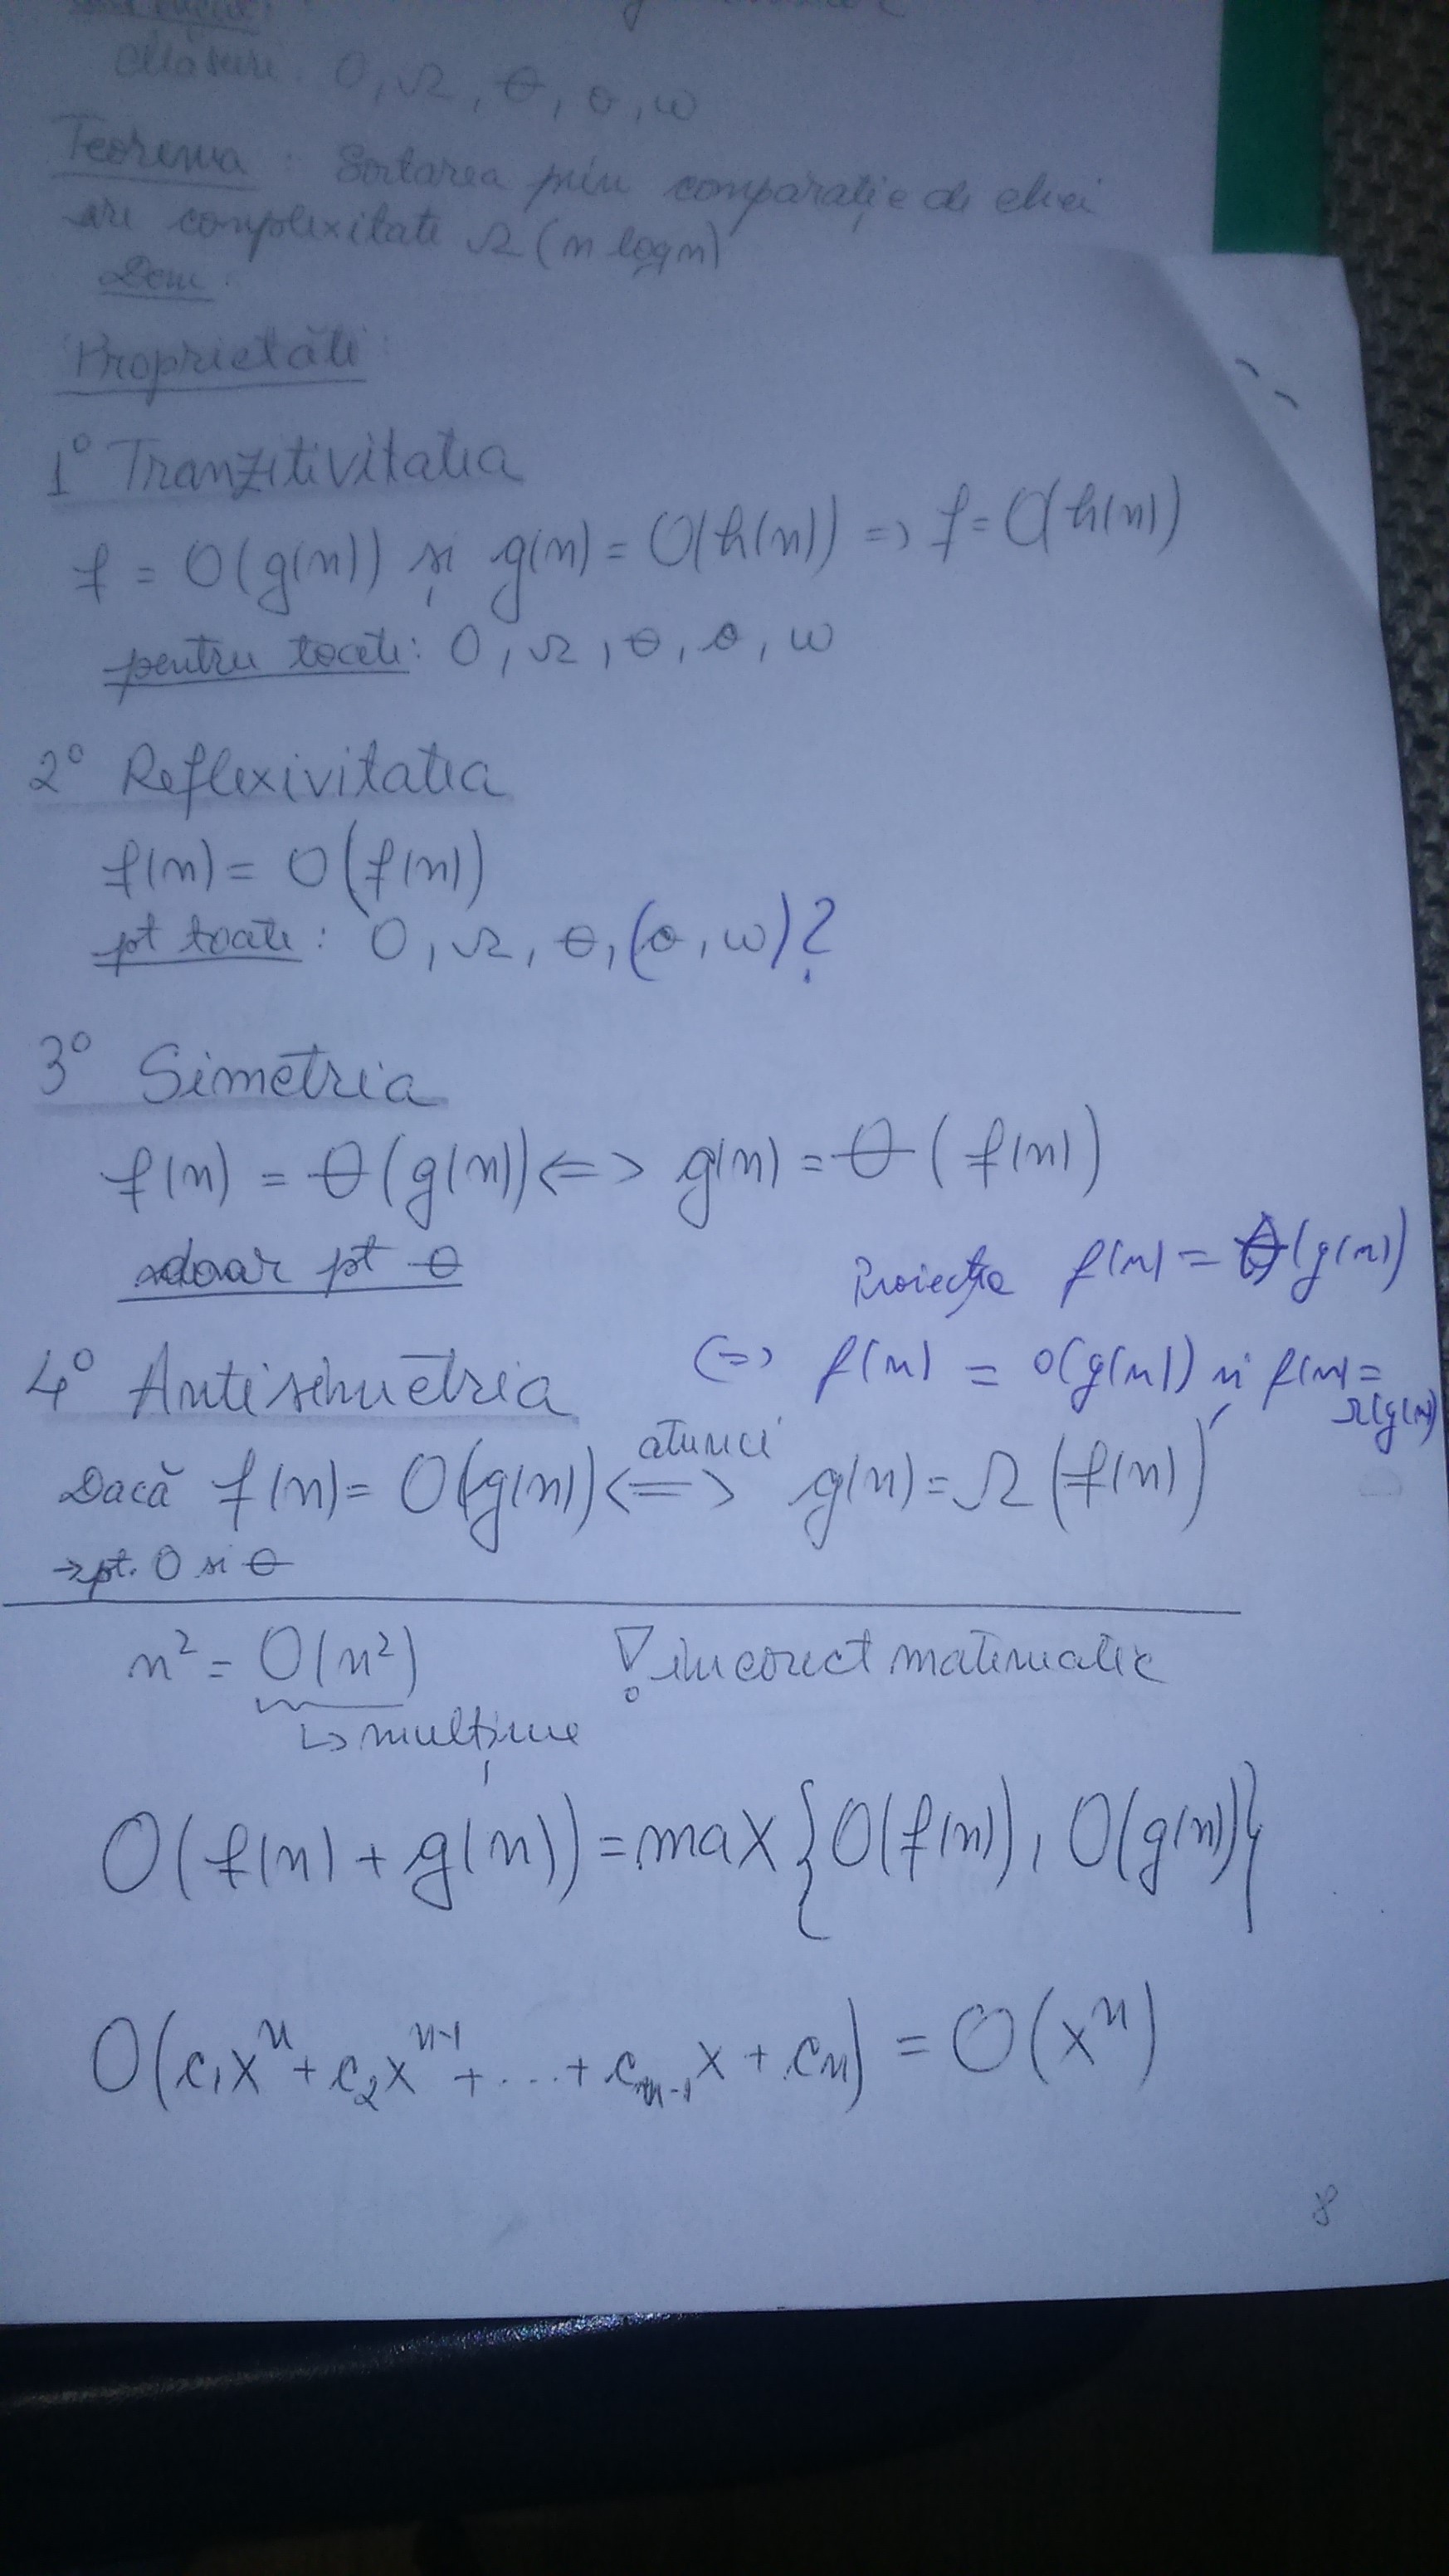 Măsuri: O, Ω, θ, o, ω
Teorema: Sortarea prin comparație de chei
are complexitate Ω(n logn)
Dem:
Proprietăti
1° Tranzitivitatea
f = O(g(n)) și g(n) = O(h(n)) => f = O(h(n))
pentru toate: O, Ω, θ, o, ω
2° Reflexivitatea
f(n) = O(f(n))
pt toate: O, Ω, θ, (o, ω)?
3° Simetria
f(n) = θ(g(n)) <=> g(n) = θ(f(n))
doar pt θ
Proiecția f(n) = θ(g(n))
<=> f(n) = O(g(n)) și f(n) = Ω(g(n))
4° Antisimetria
Dacă f(n) = O(g(n)) <=> atunci g(n) = Ω(f(n))
→ pt. O si θ
n² = O(n²) ! incorect matematic
↳ mulțime
O(f(n) + g(n)) = max {O(f(n)), O(g(n))}
O(c₁xⁿ + c₂xⁿ⁻¹ + ... + cₙ₋₁x + cₙ) = O(xⁿ)
8